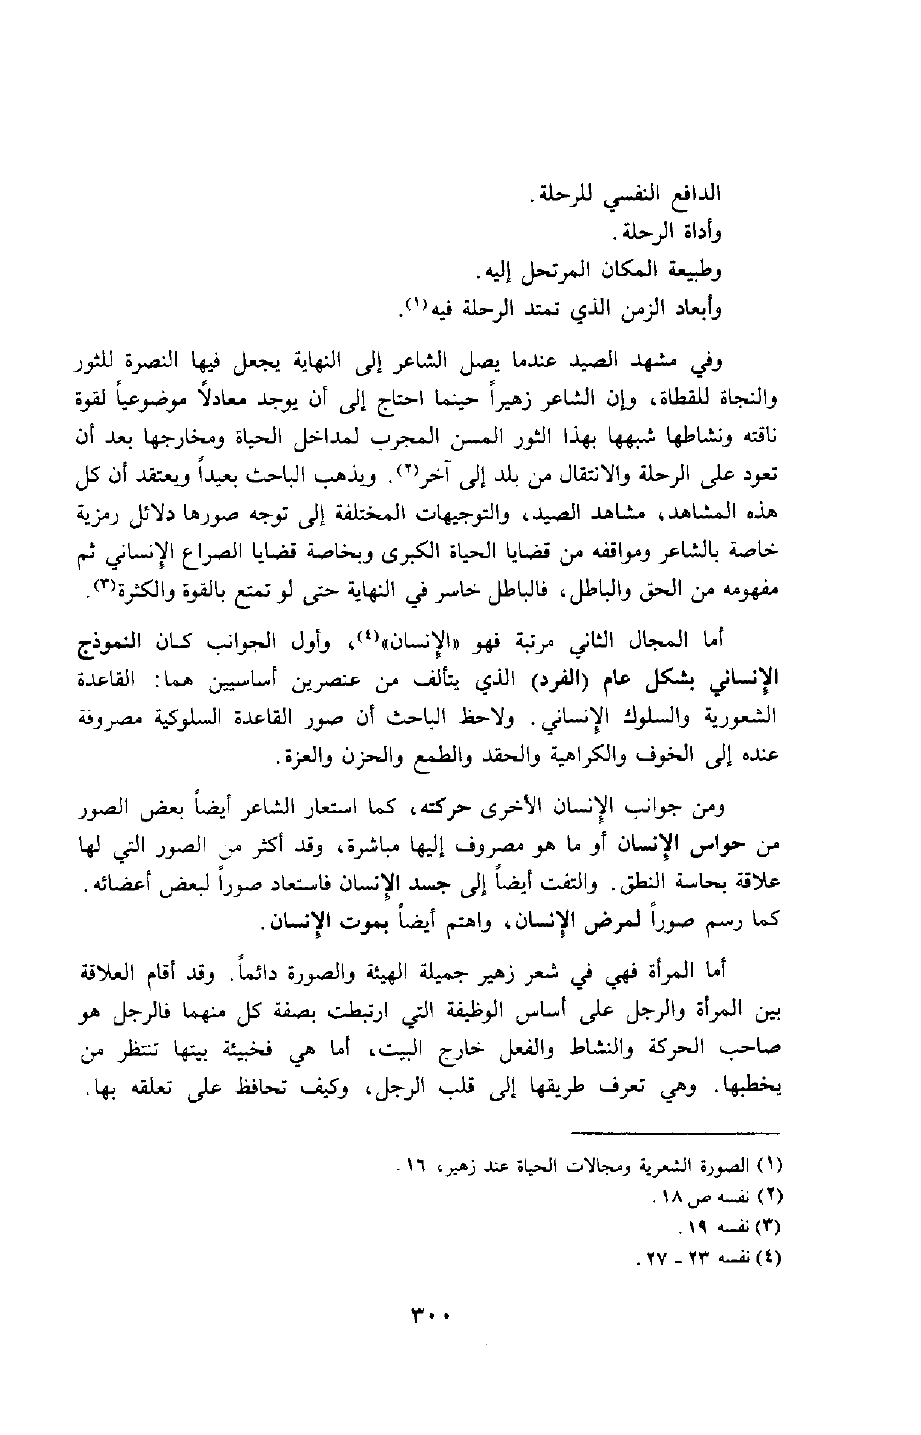 الدافع النفسي للرحلة.
وأداة الرحلة.
وطبيعة المكان المرتحل إليه.
وأبعاد الزمن الذي تمتد الرحلة فيه(١).
وفي مشهد الصيد عندما يصل الشاعر إلى النهاية يجعل فيها النصرة للثور
والنجاة للقطاة، وإن الشاعر زهيراً حينما احتاج إلى أن يوجد معادلاً موضوعياً لقوة
ناقته ونشاطها شبهها بهذا الثور المسن المجرب لمداخل الحياة ومخارجها بعد أن
تعود على الرحلة والانتقال من بلد إلى آخر(٢). ويذهب الباحث بعيداً ويعتقد أن كل
هذه المشاهد، مشاهد الصيد، والتوجيهات المختلفة إلى توجه صورها دلائل رمزية
خاصة بالشاعر ومواقفه من قضايا الحياة الكبرى وبخاصة قضايا الصراع الإنساني ثم
مفهومه من الحق والباطل، فالباطل خاسر في النهاية حتى لو تمتع بالقوة والكثرة(٣).
أما المجال الثاني مرتبة فهو «الإنسان»(٤)، وأول الجوانب كان النموذج
الإنساني بشكل عام (الفرد) الذي يتألف من عنصرين أساسيين هما: القاعدة
الشعورية والسلوك الإنساني. ولاحظ الباحث أن صور القاعدة السلوكية مصروفة
عنده إلى الخوف والكراهية والحقد والطمع والحزن والعزة.
ومن جوانب الإنسان الأخرى حركته، كما استعار الشاعر أيضاً بعض الصور
من حواس الإنسان أو ما هو مصروف إليها مباشرة، وقد أكثر من الصور التي لها
علاقة بحاسة النطق. والتفت أيضاً إلى جسد الإنسان فاستعاد صوراً لبعض أعضائه.
كما رسم صوراً لمرض الإنسان، واهتم أيضاً بموت الإنسان.
أما المرأة فهي في شعر زهير جميلة الهيئة والصورة دائماً. وقد أقام العلاقة
بين المرأة والرجل على أساس الوظيفة التي ارتبطت بصفة كل منهما فالرجل هو
صاحب الحركة والنشاط والفعل خارج البيت، أما هي فخبيئة بيتها تنتظر من
يخطبها. وهي تعرف طريقها إلى قلب الرجل، وكيف تحافظ على تعلقه بها.
(١) الصورة الشعرية ومجالات الحياة عند زهير، ١٦.
(٢) نفسه ص ١٨.
(٣) نفسه ١٩.
(٤) نفسه ٢٣ - ٢٧.
٣٠٠